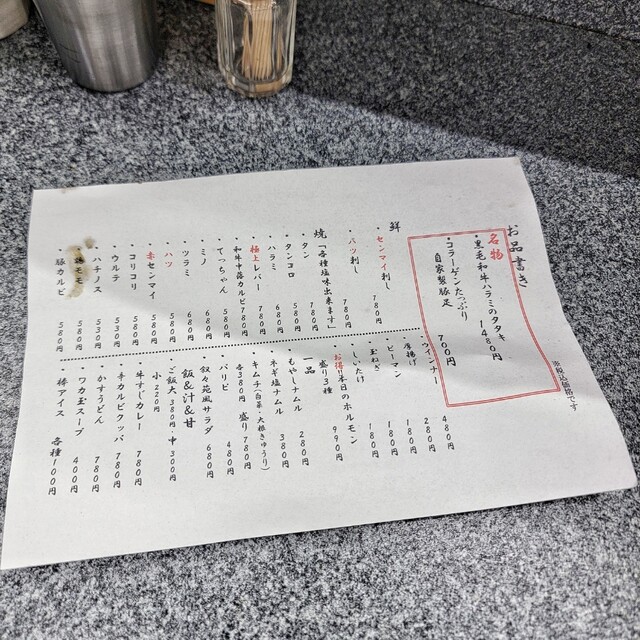 お品書き
※税込価格です
名物
・黒毛和牛ハラミのタタキ 1480円
・コラーゲンたっぷり
自家製豚足 700円
鮮
・センマイ刺し 780円
・ハツ刺し 780円
焼「各種塩味出来ます」
・タン 780円
・タンコロ 580円
・ハラミ 680円
・極上レバー 780円
・和牛中落カルビ 780円
・てっちゃん 580円
・ミノ 680円
・ツラミ 680円
・ハツ 580円
・赤センマイ 580円
・コリコリ 580円
・ウルテ 530円
・ハチノス 530円
モモ 580円
・豚カルビ 580円
・ウインナー 480円
・厚揚げ 280円
・ピーマン 180円
・玉ねぎ 180円
・しいたけ 180円
・お得!本日のホルモン
盛り3種 990円
一品
・もやしナムル 280円
・ネギ塩ナムル 380円
・キムチ(白菜・大根きゅうり)
各380円 盛り780円
・パリピ 480円
・叙々苑風サラダ 680円
飯&汁&甘
・ご飯大380円・中300円
小220円
・牛すじカレー 780円
・牛カルビクッパ 780円
・かすうどん 780円
・ワカ玉スープ 400円
・棒アイス 各種100円